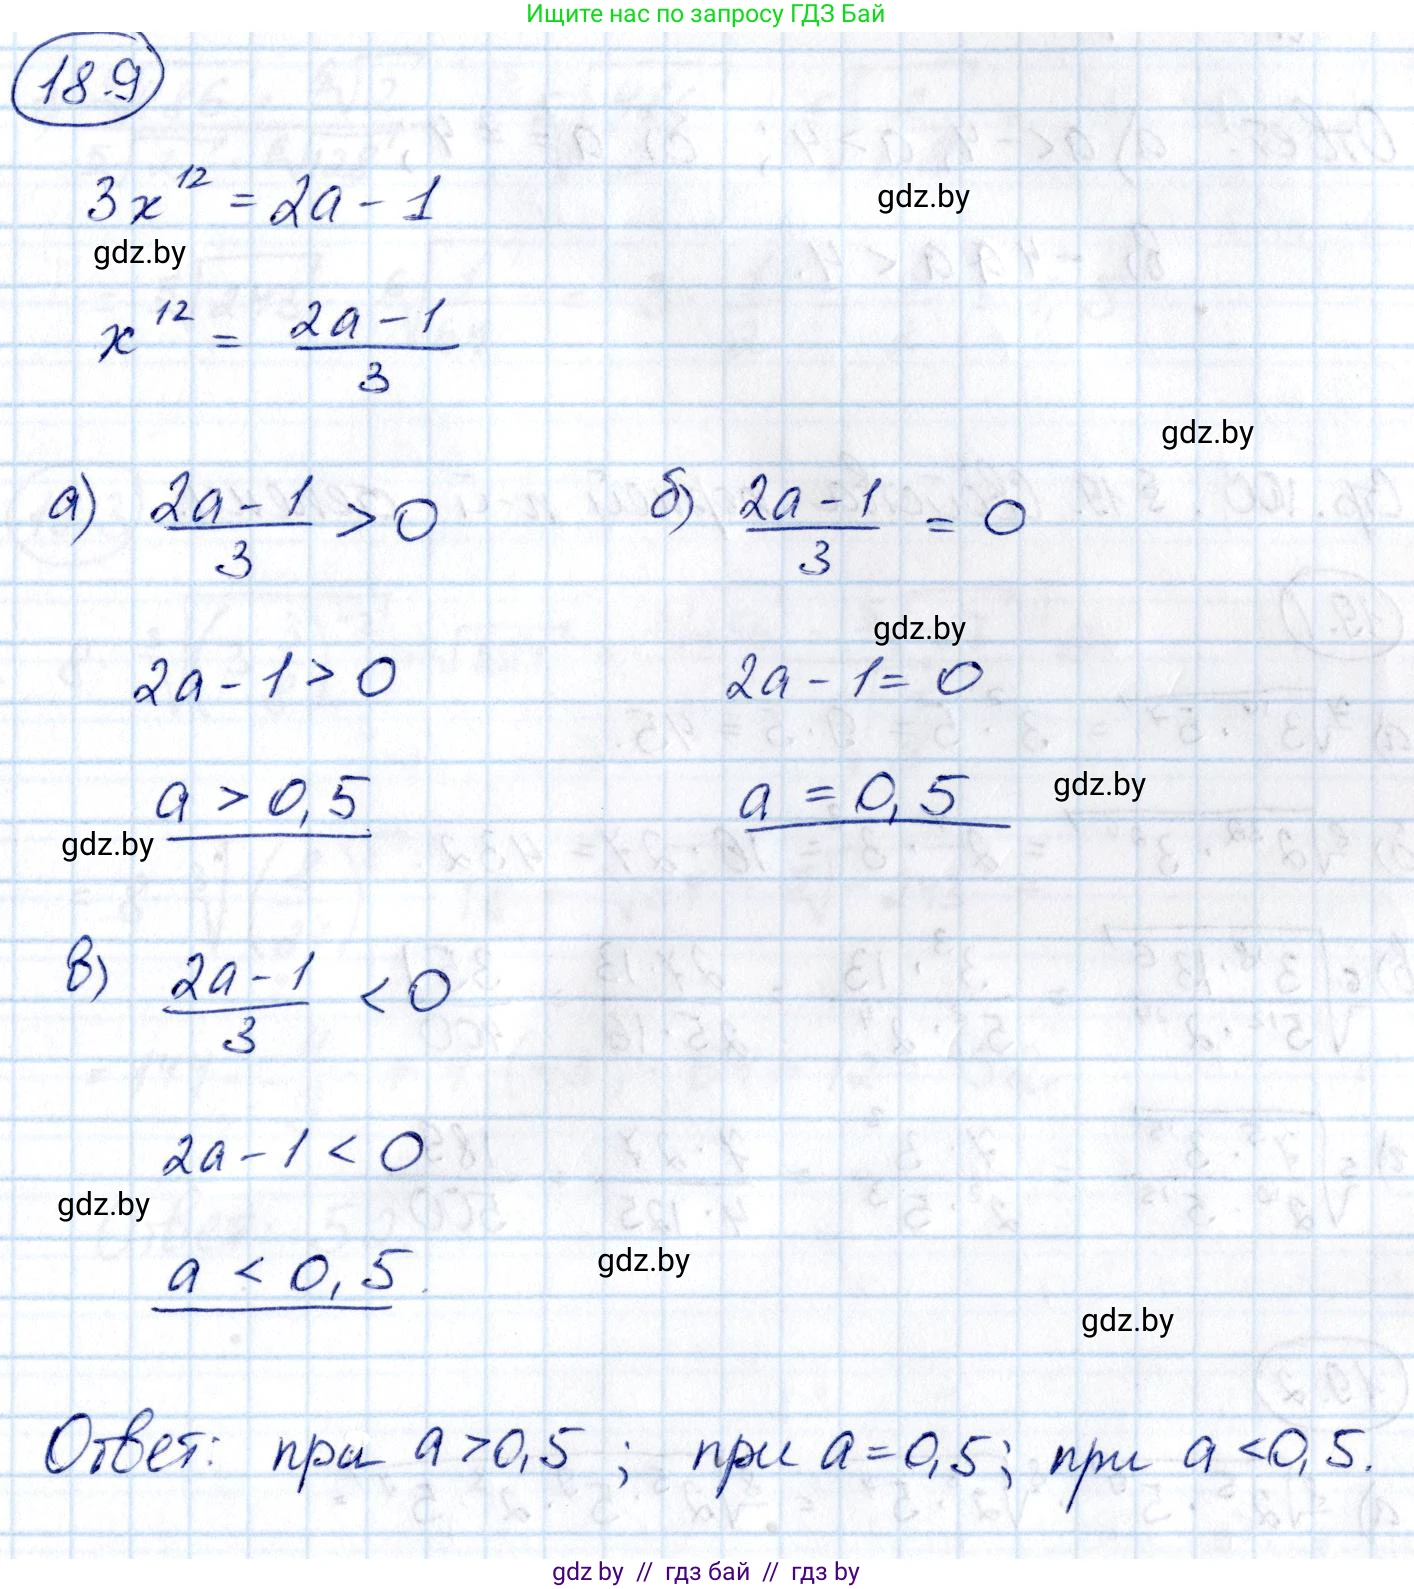 Ищите нас по запросу ГДЗ Бай
18.9
3x^12 = 2a - 1
gdz.by
gdz.by
x^12 = (2a - 1)/3
gdz.by
а) (2a - 1)/3 > 0
б) (2a - 1)/3 = 0
gdz.by
2a - 1 > 0
2a - 1 = 0
a > 0,5
a = 0,5
gdz.by
gdz.by
в) (2a - 1)/3 < 0
2a - 1 < 0
gdz.by
a < 0,5.
gdz.by
gdz.by
Ответ: при a > 0,5 ; при a = 0,5; при a < 0,5.
gdz.by // гдз бай // гдз by